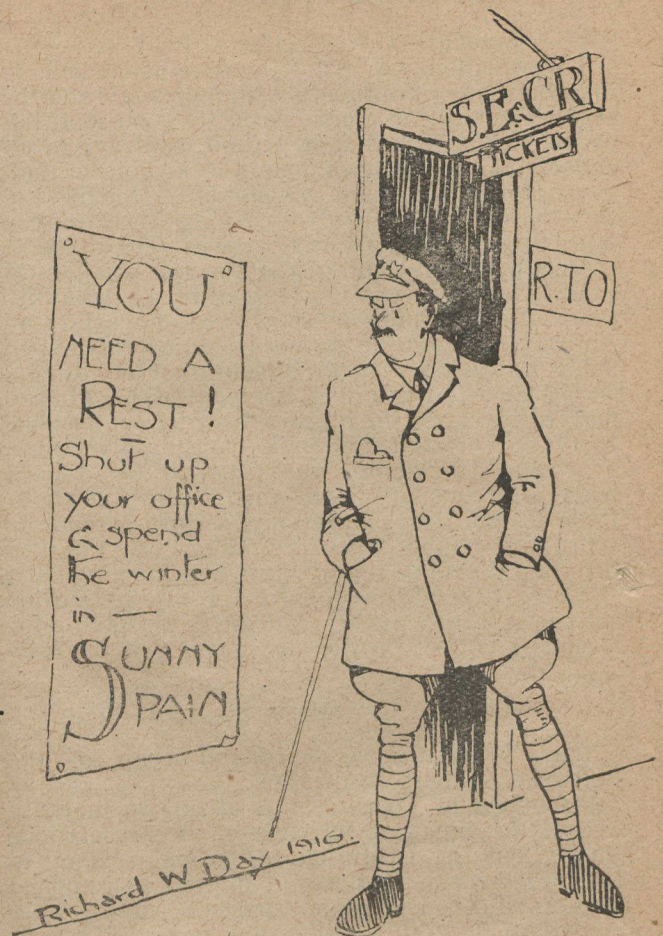 S.E.&C.R
TICKETS
R.T.O
YOU
NEED A
REST!
Shut up
your office
& spend
the winter
in —
SUNNY
SPAIN
Richard W Day. 1916.